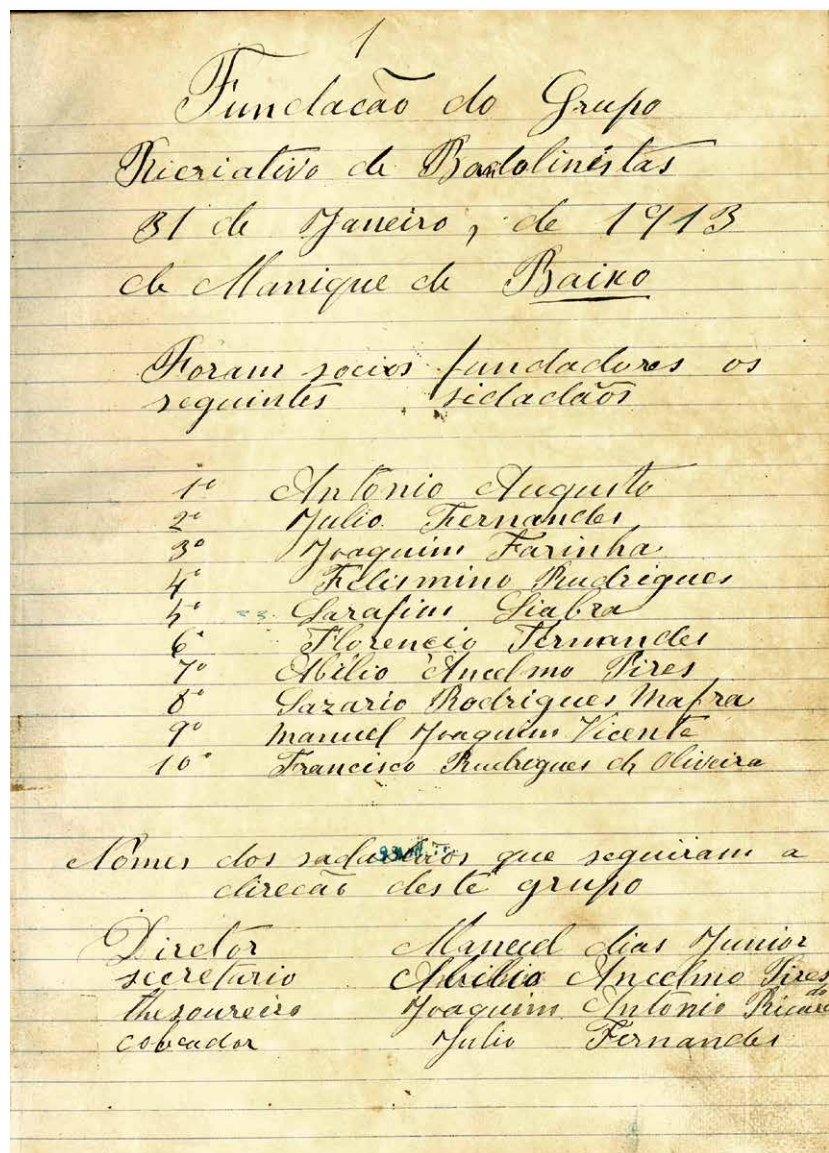 1
Fundacão do Grupo
Ricriativo de Bandolinistas
31 de Janeiro, de 1913
de Manique de Baixo
Foram socios fundadores os
seguintes sidadãos
1º Antonio Augusto
2º Julio Fernandes
3º Joaquim Farinha
4º Felismino Rudrigues
5º Sarafim Siabra
6º Florencio Fernandes
7º Abilio Ancelmo Pires
8º Lazario Rodrigues Mafra
9º Manuel Joaquim Vicente
10º Francisco Rudrogues de Oliveira
Nomes dos que seguiram a
direcão deste grupo
Diretor Manuel dias Junior
secretario Abilio Ancelmo Pires
thesoureiro Joaquim Antonio Ricardo
cobrador Julio Fernandes